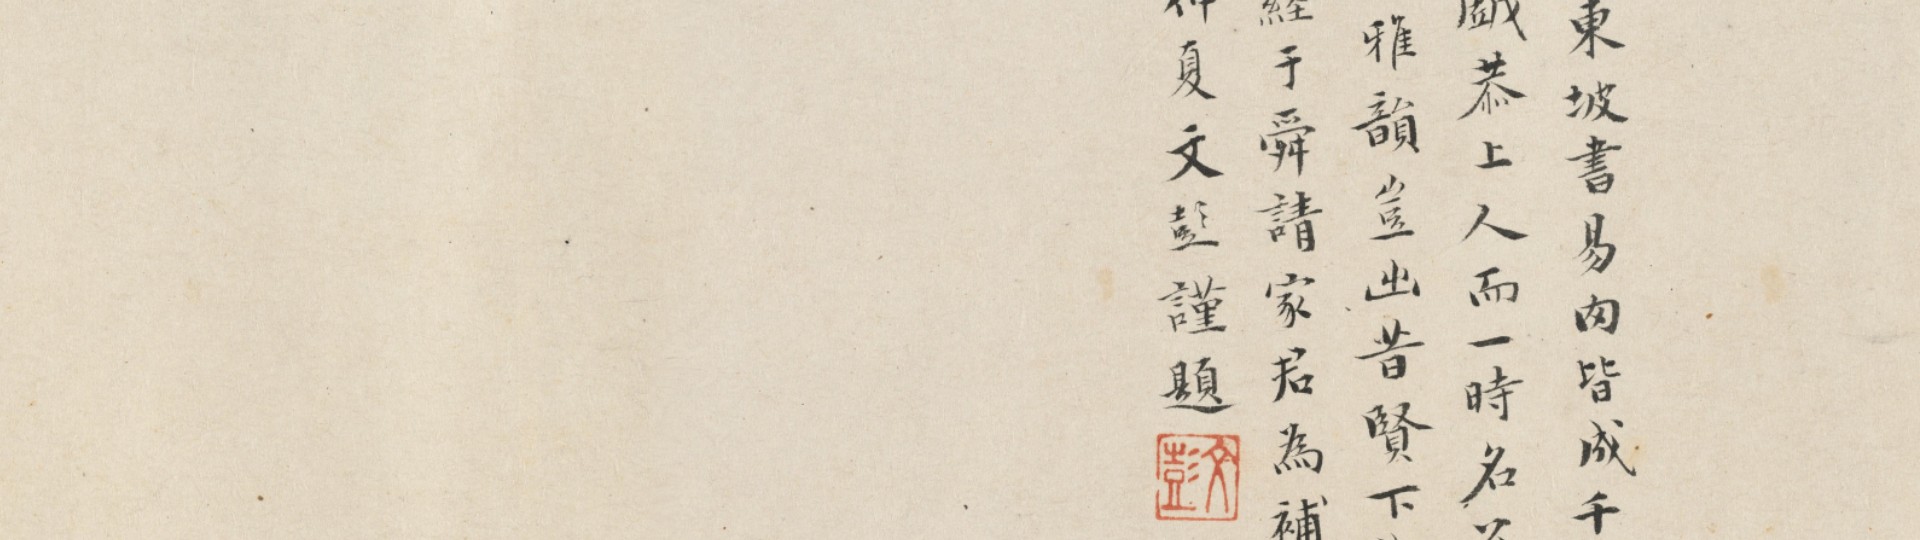 東坡書易肉皆成千
戲恭上人而一時名
雅韻豈出昔賢下
經于舜請家君為補
仲夏文彭謹題
文彭